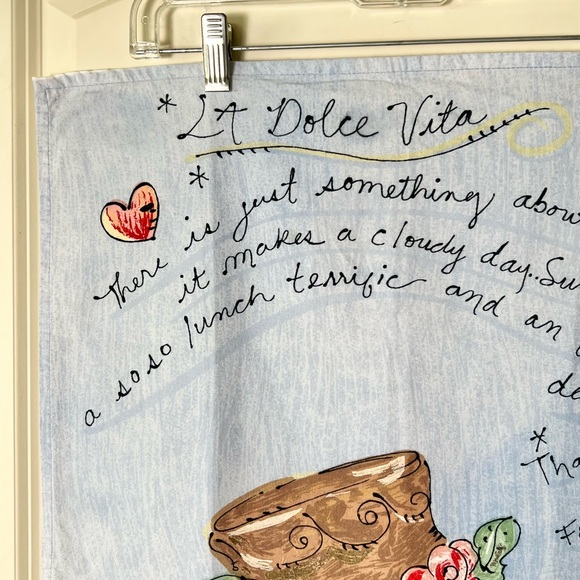 * LA Dolce Vita
*
There is just something abou
it makes a cloudy day..Su
a soso lunch terrific and an
de
*
Tha
F